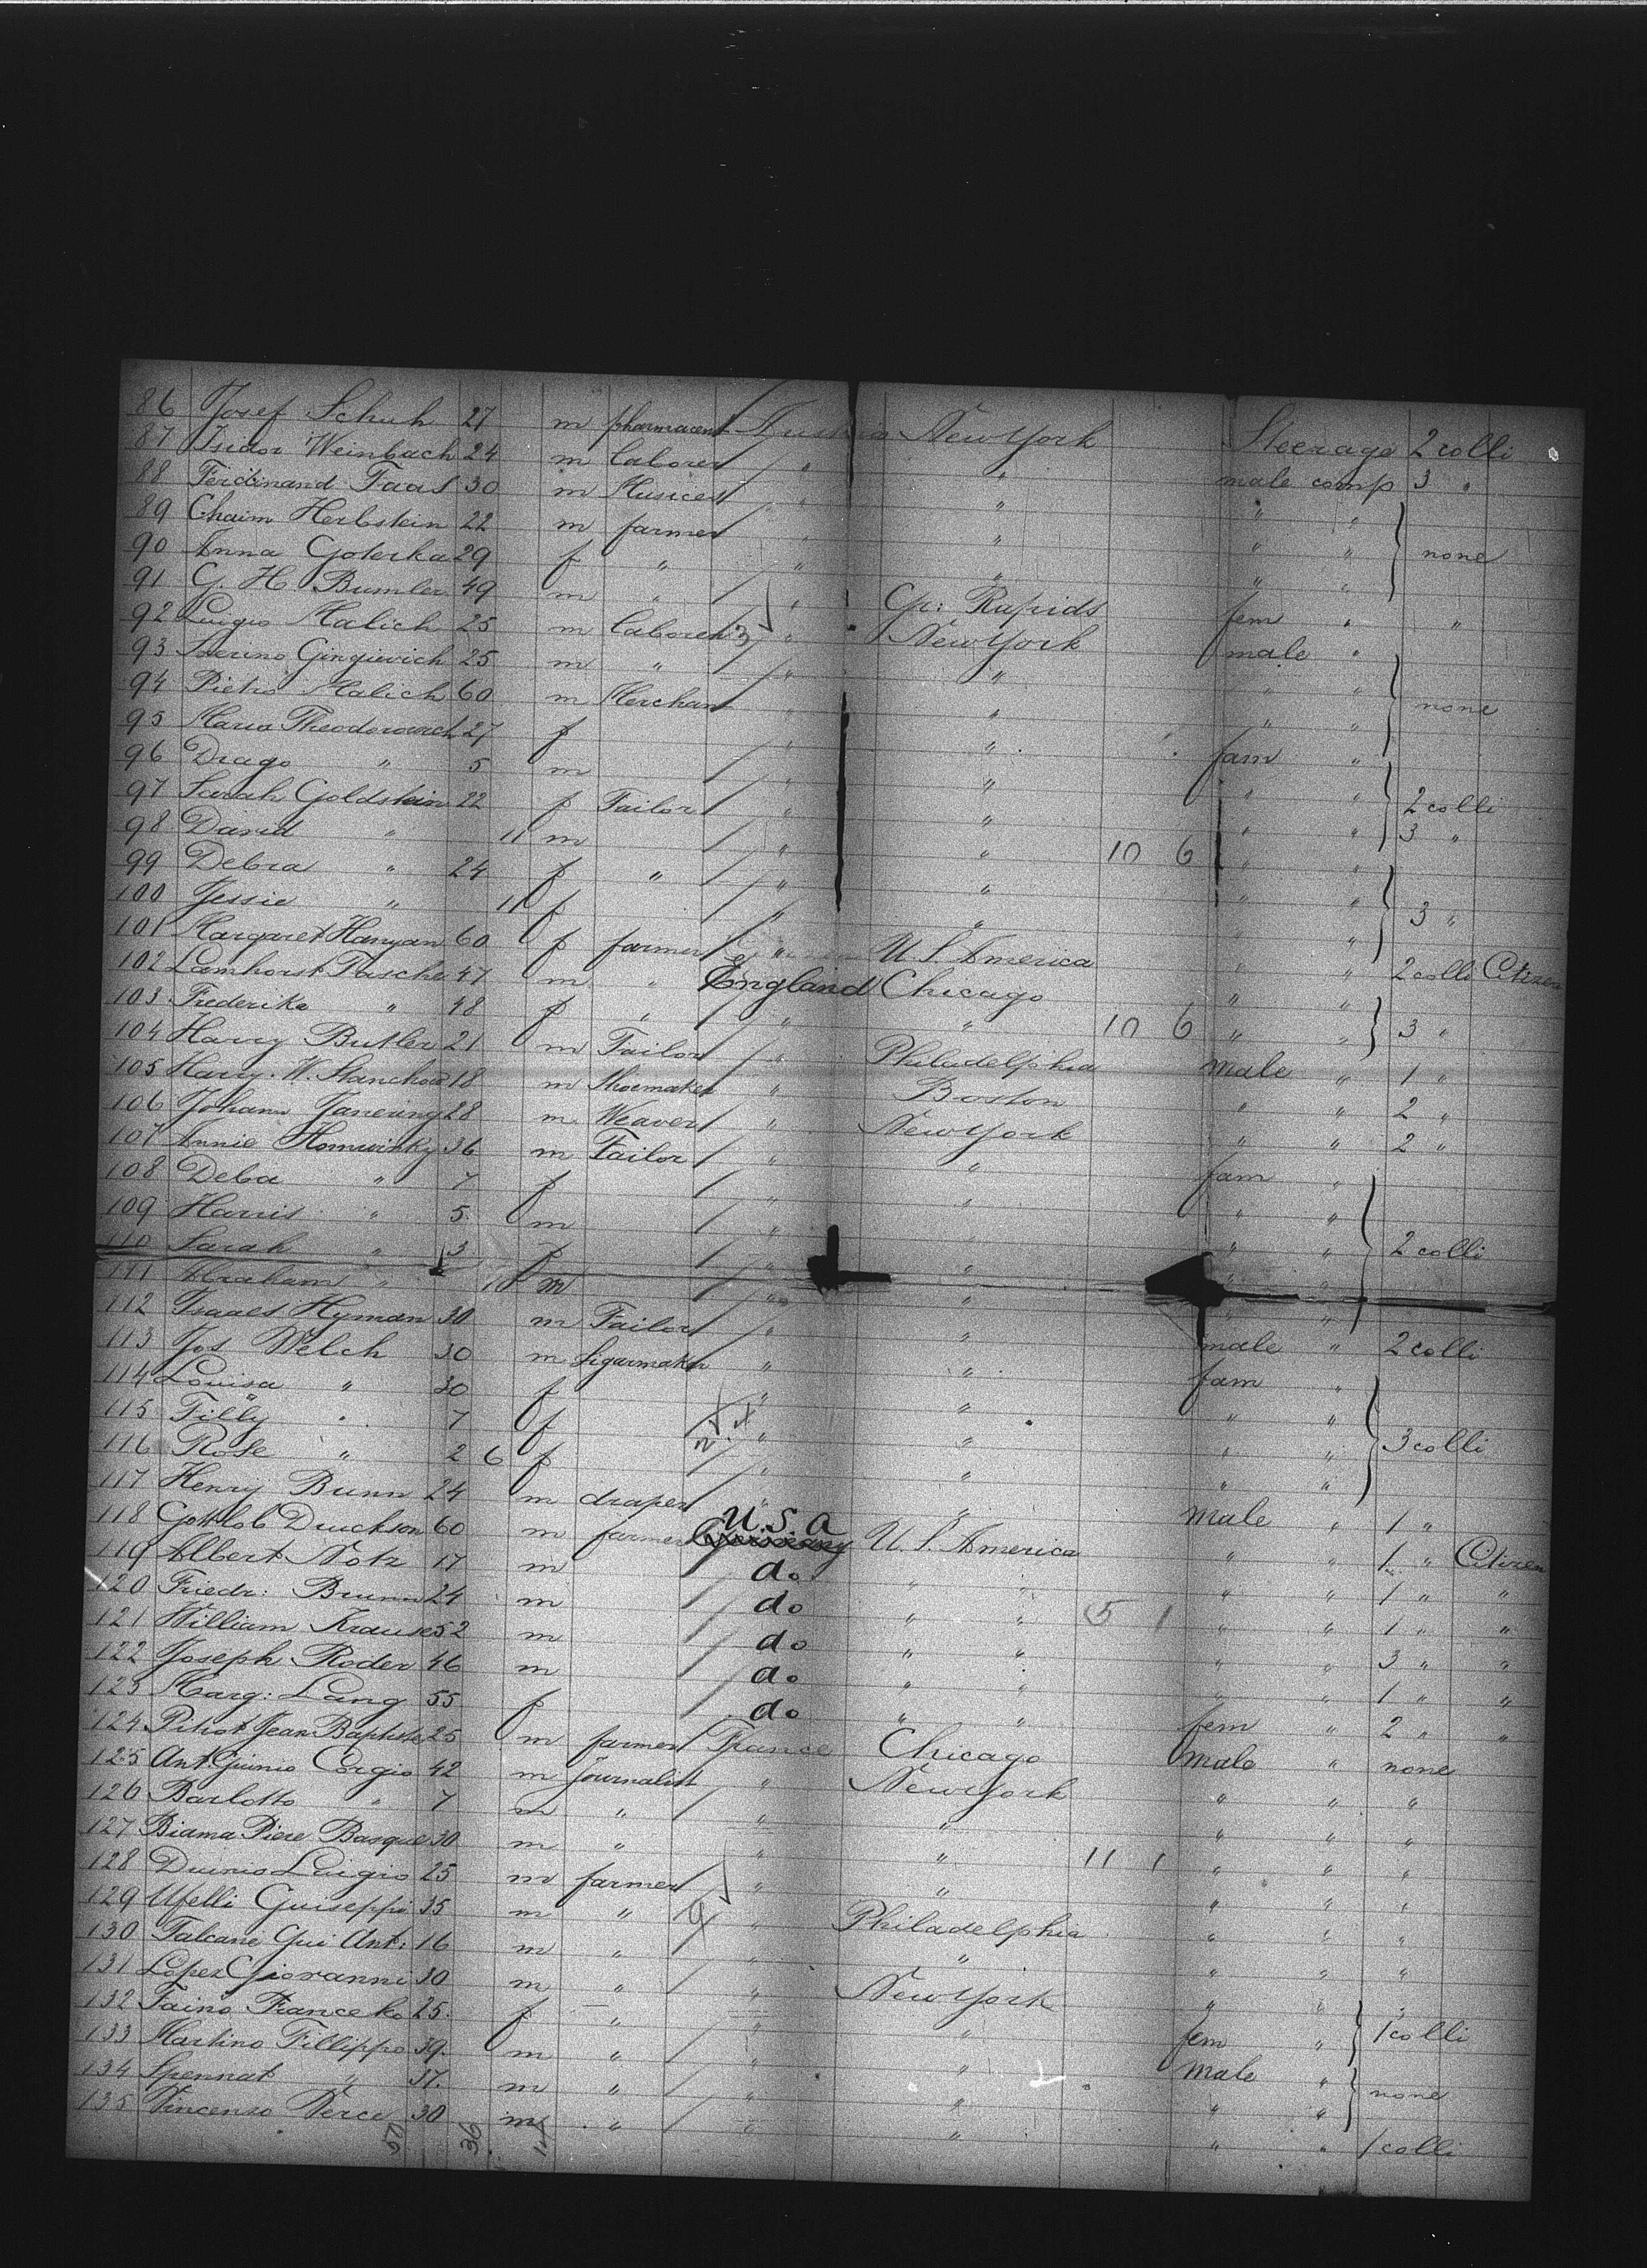 86 Josef Schuh 27 m pharmaceut Austria New York Steerage 2 colli
87 Isidor Weinbach 24 m laborer " " male comp 3 "
88 Ferdinand Faas 30 m " " " "
89 Chaim Herbstein 22 m farmer " " " " none
90 Anna 29 f " " " " "
91 G. H. Bumler 49 m " " Gr: Rapids fem " "
92 Luigio Malich 25 m laborer 3 " New York male "
93 25 m " " " " "
94 Pietro Malich 60 m Merchant " " " " none
95 Maria 27 f " " fam "
96 Drago " 5 m " " " "
97 Sarah Goldstein 22 f Tailor " " " " 2 colli
98 David " 11 m " " 10 6 " " 3 "
99 Debra " 24 f " " " " "
100 Jessie " 11 f " " " " 3 "
101 Margaret Hanyan 60 f farmer " U. S. America " " 2 colli Citizen
102 47 m " England Chicago " "
103 Frederike " 48 f " " " 10 6 " " 3 "
104 Harry Butler 21 m Tailor " Philadelphia male " 1 "
105 Harry. W. 18 m Shoemaker " Boston " " 2 "
106 Johann 28 m Weaver " New York " " 2 "
107 Annie 36 m Tailor " " fam "
108 Deba " 7 f " " " "
109 Harris " 5 m " " " " 2 colli
110 Sarah " 3 f " " " "
111 Abraham " 10 m " " " "
112 Isaacs Hyman 30 m Tailor " " male " 2 colli
113 Jos Welch 30 m Sigarmaker " " fam "
114 Louisa " 30 f " " " "
115 Tilly " 7 f 2 " " " " 3 colli
116 Rose " 2 6 f " " " "
117 Henry Bunn 24 m draper " " male " 1 "
118 Gottlob 60 m farmer U.S.A Germany U. S. America " " 1 " Citizen
119 Albert Notz 17 m do " " " " 1 " "
120 Friedr: Brunn 24 m do " " 5 1 " " 1 " "
121 William Krause 52 m do " " " " 3 " "
122 Joseph Roder 46 m do " " " " 1 " "
123 Marg: Lang 55 f do " " fem " 2 " "
124 Jean Baptiste 25 m farmer France Chicago male " none
125 Ant. 42 m Journalist " New York " " "
126 Barlotto " 7 m " " " " " "
127 Biama Piere Basque 30 m " " " 11 1 " " "
128 Luigio 25 m farmer " " " " "
129 Guiseppi 35 m " 9 " Philadelphia " " "
130 Falcane Gui Ant: 16 m " " " " " "
131 Lopez Giovanni 30 m " " New York " " "
132 Taino 25 f " " " fem " 1 colli
133 Martino Fillippo 39 m " " " male "
134 Spennat " 37. m " " " " " none
135 Vincenso 30 m " " " " " 1 colli
50 36 14